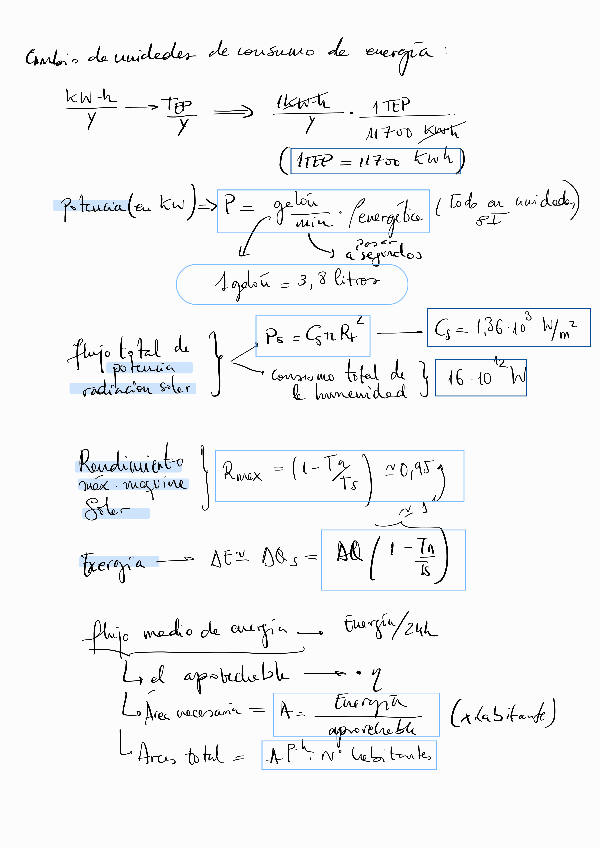 Cambio de unidades de consumo de energía :
kW·h/y → TEP/y ⟹ 1kW·h/y · 1TEP/11700 kWh
( 1TEP = 11700 kWh )
potencia (en kW) ⟹ P = galón/min · ρenergética ( Todo en unidades SI )
pasar a segundos
1 galón = 3,8 litros
flujo total de potencia radiación solar } Ps = Cs π Rt² → Cs = 1,36·10³ W/m²
consumo total de la humanidad } 16·10¹² W
Rendimiento máx. máquina solar } Rmax = (1 - Ta/Ts) ≃ 0,95
≃ 1
Exergía → ΔE ≃ ΔQs = ΔQ ( 1 - Ta/Ts )
flujo medio de energía → Energía/24h
↳ el aprovechable → · η
↳ Área necesaria = A = Energía/aprovechable (x habitante)
↳ Área total = A · Nº habitantes